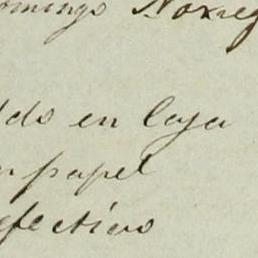 omingo Norieg
ldo en Caja
n papel
efectivo